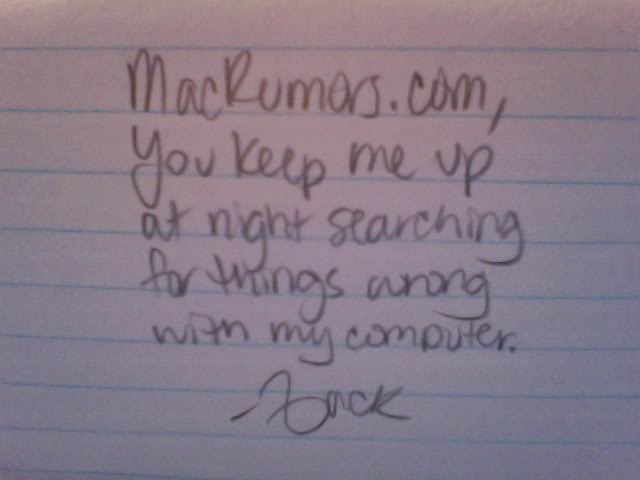 MacRumors.com,
You keep me up
at night searching
for things wrong
with my computer.
-Zack